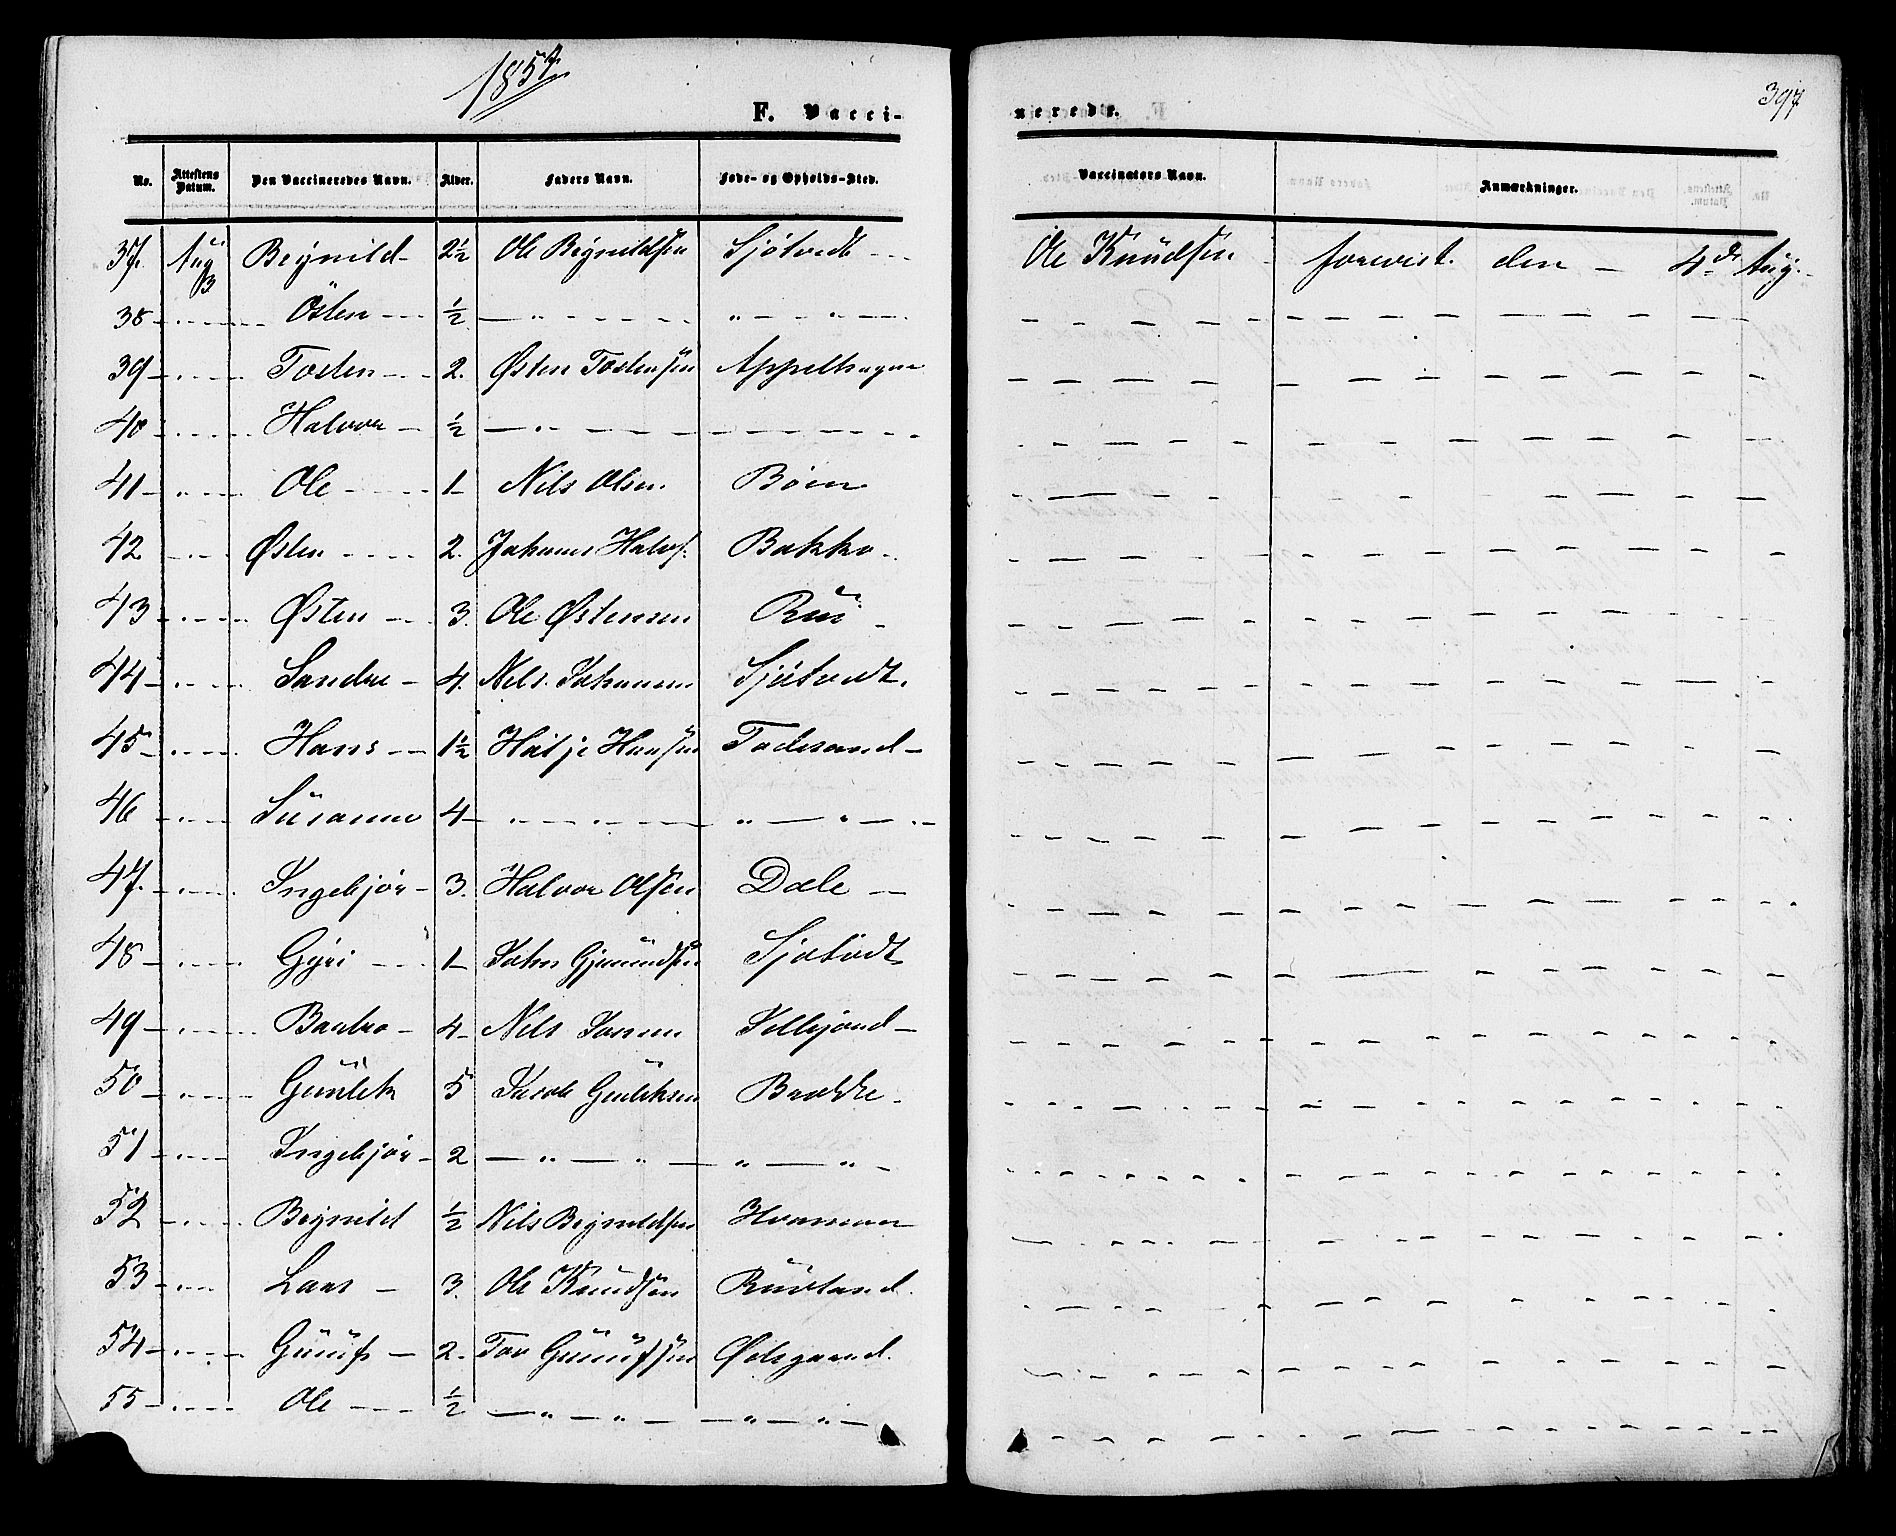 1857
397
F. Vacci-
nerede.
No. Attestens Datum. Den Vaccineredes Navn. Alder. Faders Navn. Føde- og Opholds-Sted. Vaccinators Navn. Anmærkninger.
37. Aug 3 Brynild 2½ Ole Brynildsen Sjötvedt Ole Knudsen forevist den 4de Aug.
38 Östen ½ — „ — „ — „
39 Tosten 2. Østen Tostensen
40 Halvor ½ — „ —
41 Ole 1 Nils Olsen Böen
42 Østen 2. Johannes Halvs. Bakka
43 Østen 3. Ole Østensen Rui
44 Sandve 4. Nels Johannesen Sjötvedt.
45 Hans 1½ Hansen
46 Susanne 4 — „ — „ — „
47. Ingebjør 3. Halvor Olsen Dale
48 Gyri 1 John Gjermundsen Sjötvedt
49 Barbro 4 Nils
50 Gunlek 5 Jacob Gunleksen Brække
51 Ingebjør 2 — „ — „ — „ — „
52 Brynild ½ Nils Brynildsen
53 Lars 3. Ole Knudsen Rustand.
54 Gunuf 2. Tov Gunufsen Ødegaard.
55 Ole ½ — „ — „ — „ — „